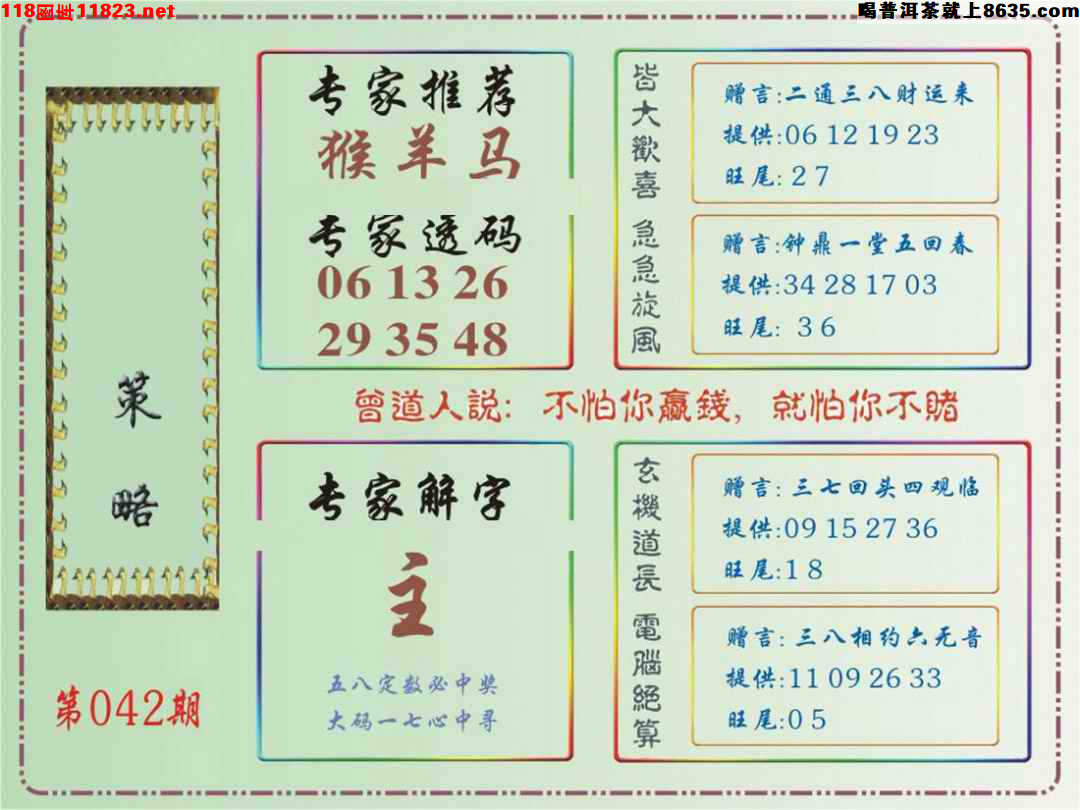 118图址11823.net
喝普洱茶就上8635.com
策略
第042期
专家推荐
猴羊马
专家透码
06 13 26
29 35 48
皆大歡喜
赠言:二通三八财运来
提供:06 12 19 23
旺尾: 2 7
急急旋風
赠言:钟鼎一堂五回春
提供:34 28 17 03
旺尾: 3 6
曾道人説: 不怕你贏錢, 就怕你不賭
专家解字
主
五八定数必中奖
大码一七心中寻
玄機道長
赠言: 三七回头四观临
提供:09 15 27 36
旺尾:1 8
電腦絕算
赠言: 三八相约六无音
提供:11 09 26 33
旺尾:0 5